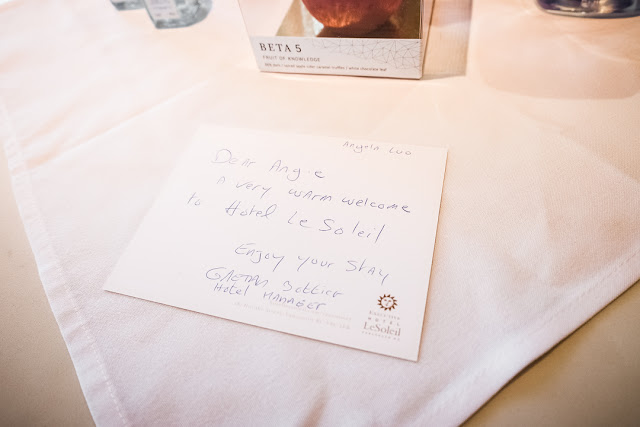 BETA 5
FRUIT OF KNOWLEDGE
Angela Luo
Dear Angie
A very warm welcome
to Hotel Le Soleil
Enjoy your stay
GAETAN
Hotel MANAGER
EXECUTIVE
HOTEL
LeSoleil